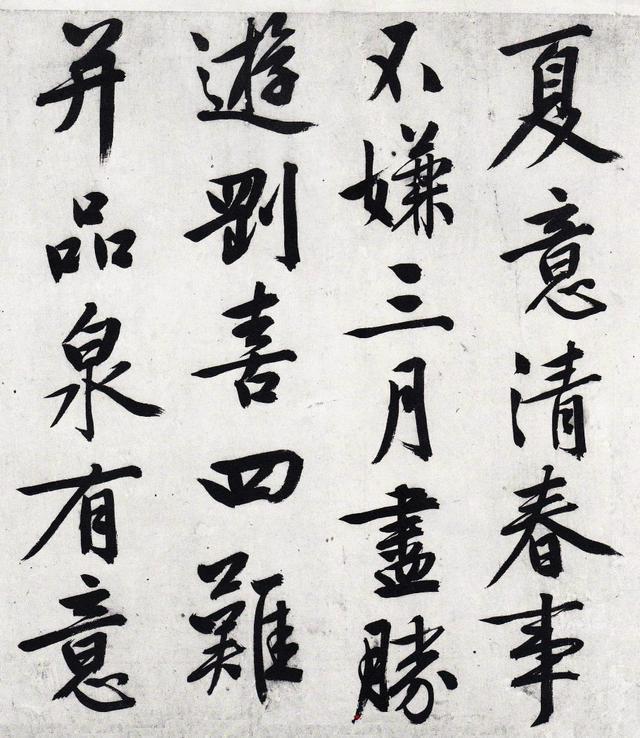 夏意清春事
不嫌三月盡勝
遊剛喜四難
并品泉有意